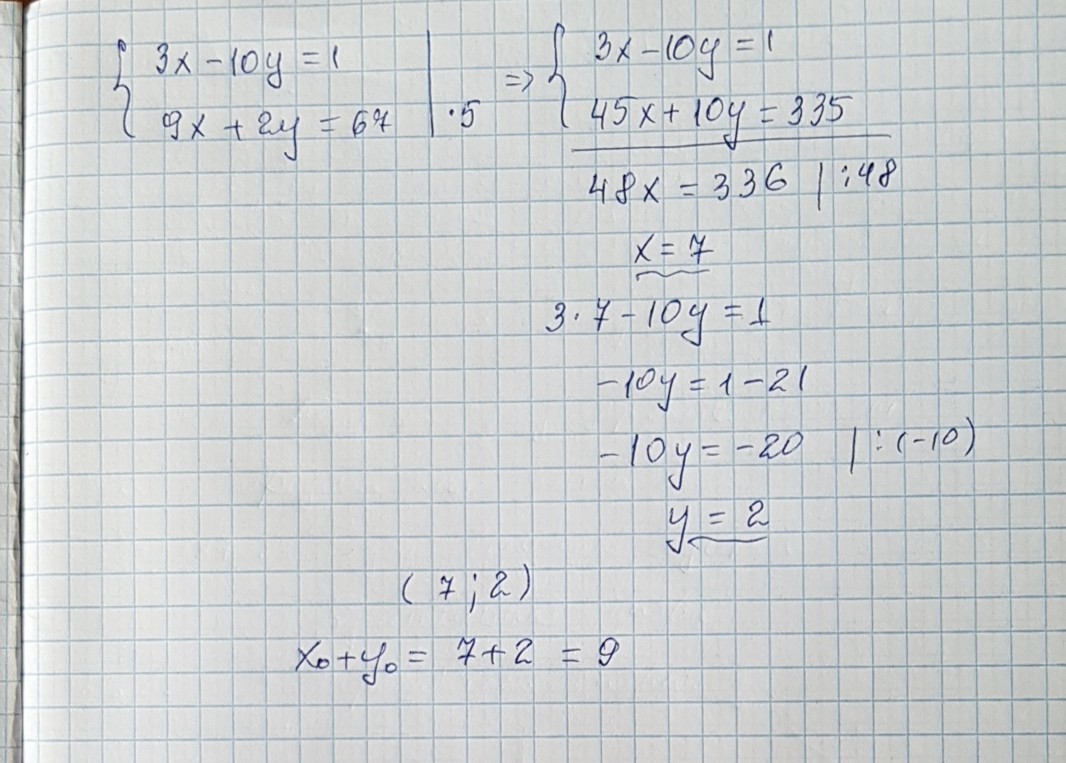 3x - 10y = 1
9x + 2y = 67 | ·5
=> 3x - 10y = 1
45x + 10y = 335
48x = 336 | :48
x = 7
3·7 - 10y = 1
-10y = 1 - 21
-10y = -20 | :(-10)
y = 2
(7; 2)
x₀ + y₀ = 7 + 2 = 9